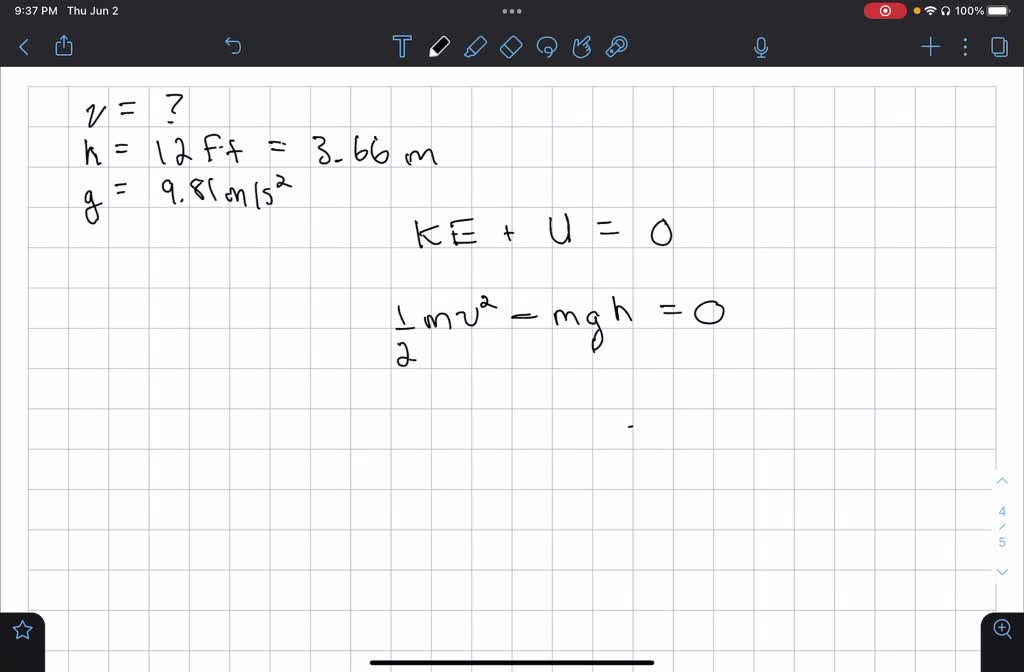 9:37 PM Thu Jun 2
100%
v = ?
h = 12 Ft = 3.66 m
g = 9.81 m/s²
KE + U = 0
1/2 mv² - mgh = 0
4/5